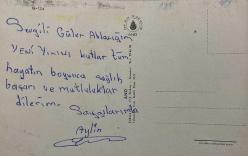 Sevgili Güler Ablacığım
Yeni Yılınızı kutlar tüm
hayatın boyunca sağlık
başarı ve mutluluklar
dilerim.
Saygılarımla
Aylin